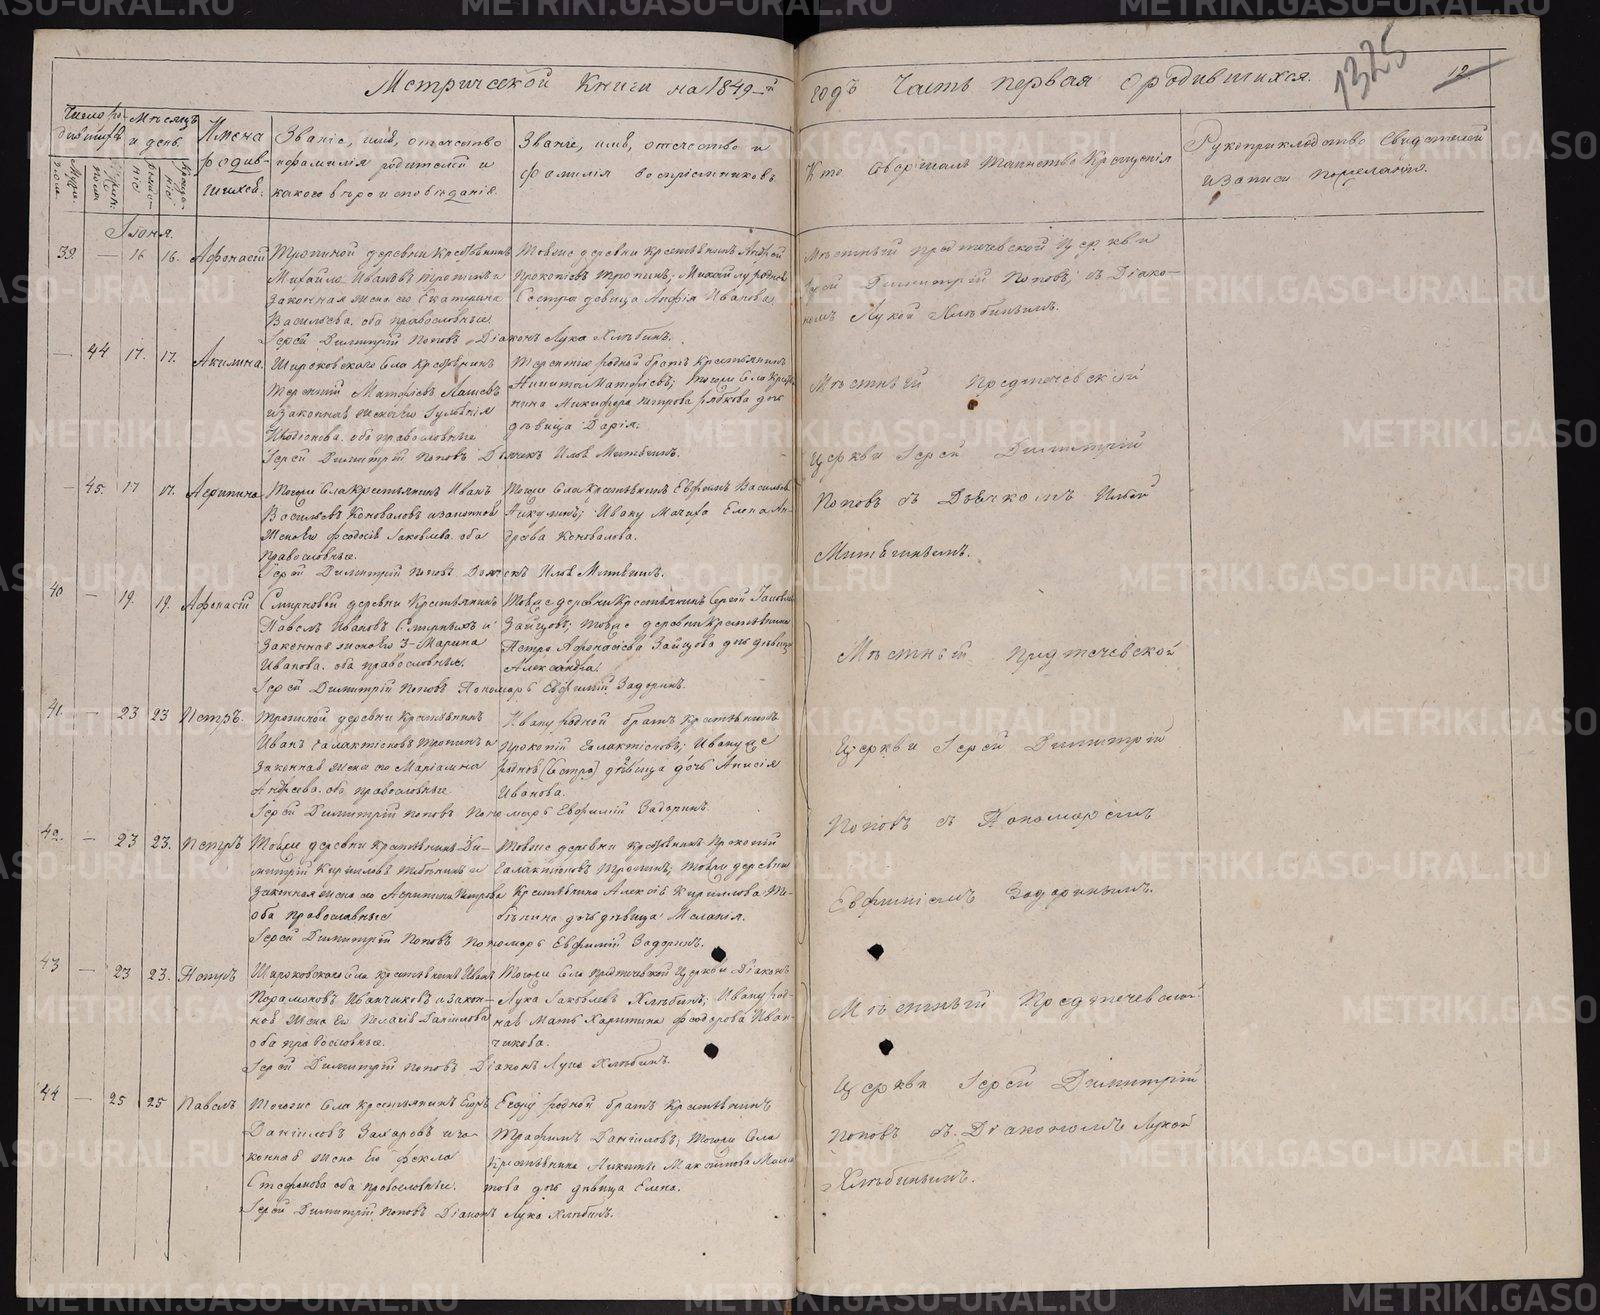 Метрической Книги на 1849-й годъ Часть первая о родившихся.
1325
12
Число родившихся
Мѣсяцъ и день.
Имена родившихся.
Званіе, имя, отчество и фамилія родителей и какого вѣроисповѣданія.
Званіе, имя, отчество и фамилія воспріемниковъ.
Кто совершалъ таинство Крещенія
Рукоприкладство свидѣтелей и записи по желанію.
Іюня.
39. — 16 16. Афонасій
Тропиной деревни крестьянинъ
Михайло Ивановъ Тропинъ и
законная жена его Екатерина
Васильева. оба православные
Товоже деревни крестьянинъ Андрей
Прокопіевъ Тропинъ; Михайлу родная
Сестра девица Анфія Иванова
Іерей Димитрій Поповъ Діаконъ Лука Хлѣбинъ.
Мѣстный Предтечевской Церкви
Іерей Димитрій Поповъ, съ Діако-
номъ Лукой Хлѣбинымъ.
— 44 17. 17. Акилина.
Широковскаго Села крестьянинъ
Терентій Матфіевъ
и законная жена его
оба православные
Терентію родной братъ крестьянинъ
Никита Матфіевъ; тогоже Села кресть-
нина Никифора дочь
дѣвица Дарія.
Іерей Димитрій Поповъ Дьячекъ Илья
Мѣстный Предтечевской
Церкви Іерей Димитрій
Поповъ съ Дьячкомъ Ильей
— 45. 17 17. Агрипина
Тогоже Села крестьянинъ Иванъ
Васильевъ Коноваловъ и законная
жена его Феодосія Яковлева. оба
православные.
Тогоже Села крестьянинъ Ефимъ Васильевъ
Ивану Мачиха Елена
Коновалова.
Іерей Димитрій Поповъ Дьячекъ Илья
40 — 19. 19. Афонасій
Смирновой деревни крестьянинъ
Павелъ Ивановъ Смирныхъ и
законная жена его 3- Марина
Иванова. оба православные.
Товоже деревни крестьянинъ Сергей
Зайцовъ; товоже деревни крестьянина
Петра Афонасіева Зайцова дочь дѣвица
Александра.
Іерей Димитрій Поповъ Пономарь Евфимій Задоринъ.
Мѣстный Предтечевской
Церкви Іерей Димитрій
Поповъ съ Пономаремъ
Евфиміемъ Задоринымъ.
41. — 23 23 Петръ.
Тропиной деревни крестьянинъ
Иванъ Галактіоновъ Тропинъ и
законная жена его Маріамна
Андреева. оба православные
Ивану родной братъ крестьянинъ
Прокопій Галактіоновъ; Ивану же
родная (Сестра) дѣвица дочь Анисія
Иванова.
Іерей Димитрій Поповъ Пономарь Евфимій Задоринъ.
42. — 23 23. Петръ
Товоже деревни крестьянинъ Ди-
митрій Кириловъ и
законная жена его Агрипина Петрова
оба православные
Товоже деревни крестьянинъ Прокопій
Галактіоновъ Тропинъ; товоже деревни
крестьянина Алексія Кирилова
дочь дѣвица Меланія.
Іерей Димитрій Поповъ Пономарь Евфимій Задоринъ.
43 — 23 23. Петръ
Широковского Села крестьянинъ Иванъ
Парамоновъ Иванчиковъ и закон-
ная жена его Пелагія Даніилова
оба православные.
Тогоже Села Предтечевской Церкви Діаконъ
Лука Яковлевъ Хлѣбинъ; Ивану род-
ная Мать Харитина Феодорова Иван-
чикова.
Іерей Димитрій Поповъ Діаконъ Лука Хлѣбинъ.
Мѣстный Предтечевской
Церкви Іерей Димитрій
Поповъ съ Діакономъ Лукой
Хлѣбинымъ.
44 — 25 25 Павелъ
Тогоже Села крестьянинъ Егоръ
Даніиловъ Захаровъ и за-
конная жена его Фекла
Стефанова оба православные.
Егору родной братъ крестьянинъ
Трафимъ Даніиловъ; тогоже Села
крестьянина Никиты
дочь дѣвица Елена.
Іерей Димитрій Поповъ Діаконъ Лука Хлѣбинъ.
METRIKI.GASO-URAL.RU